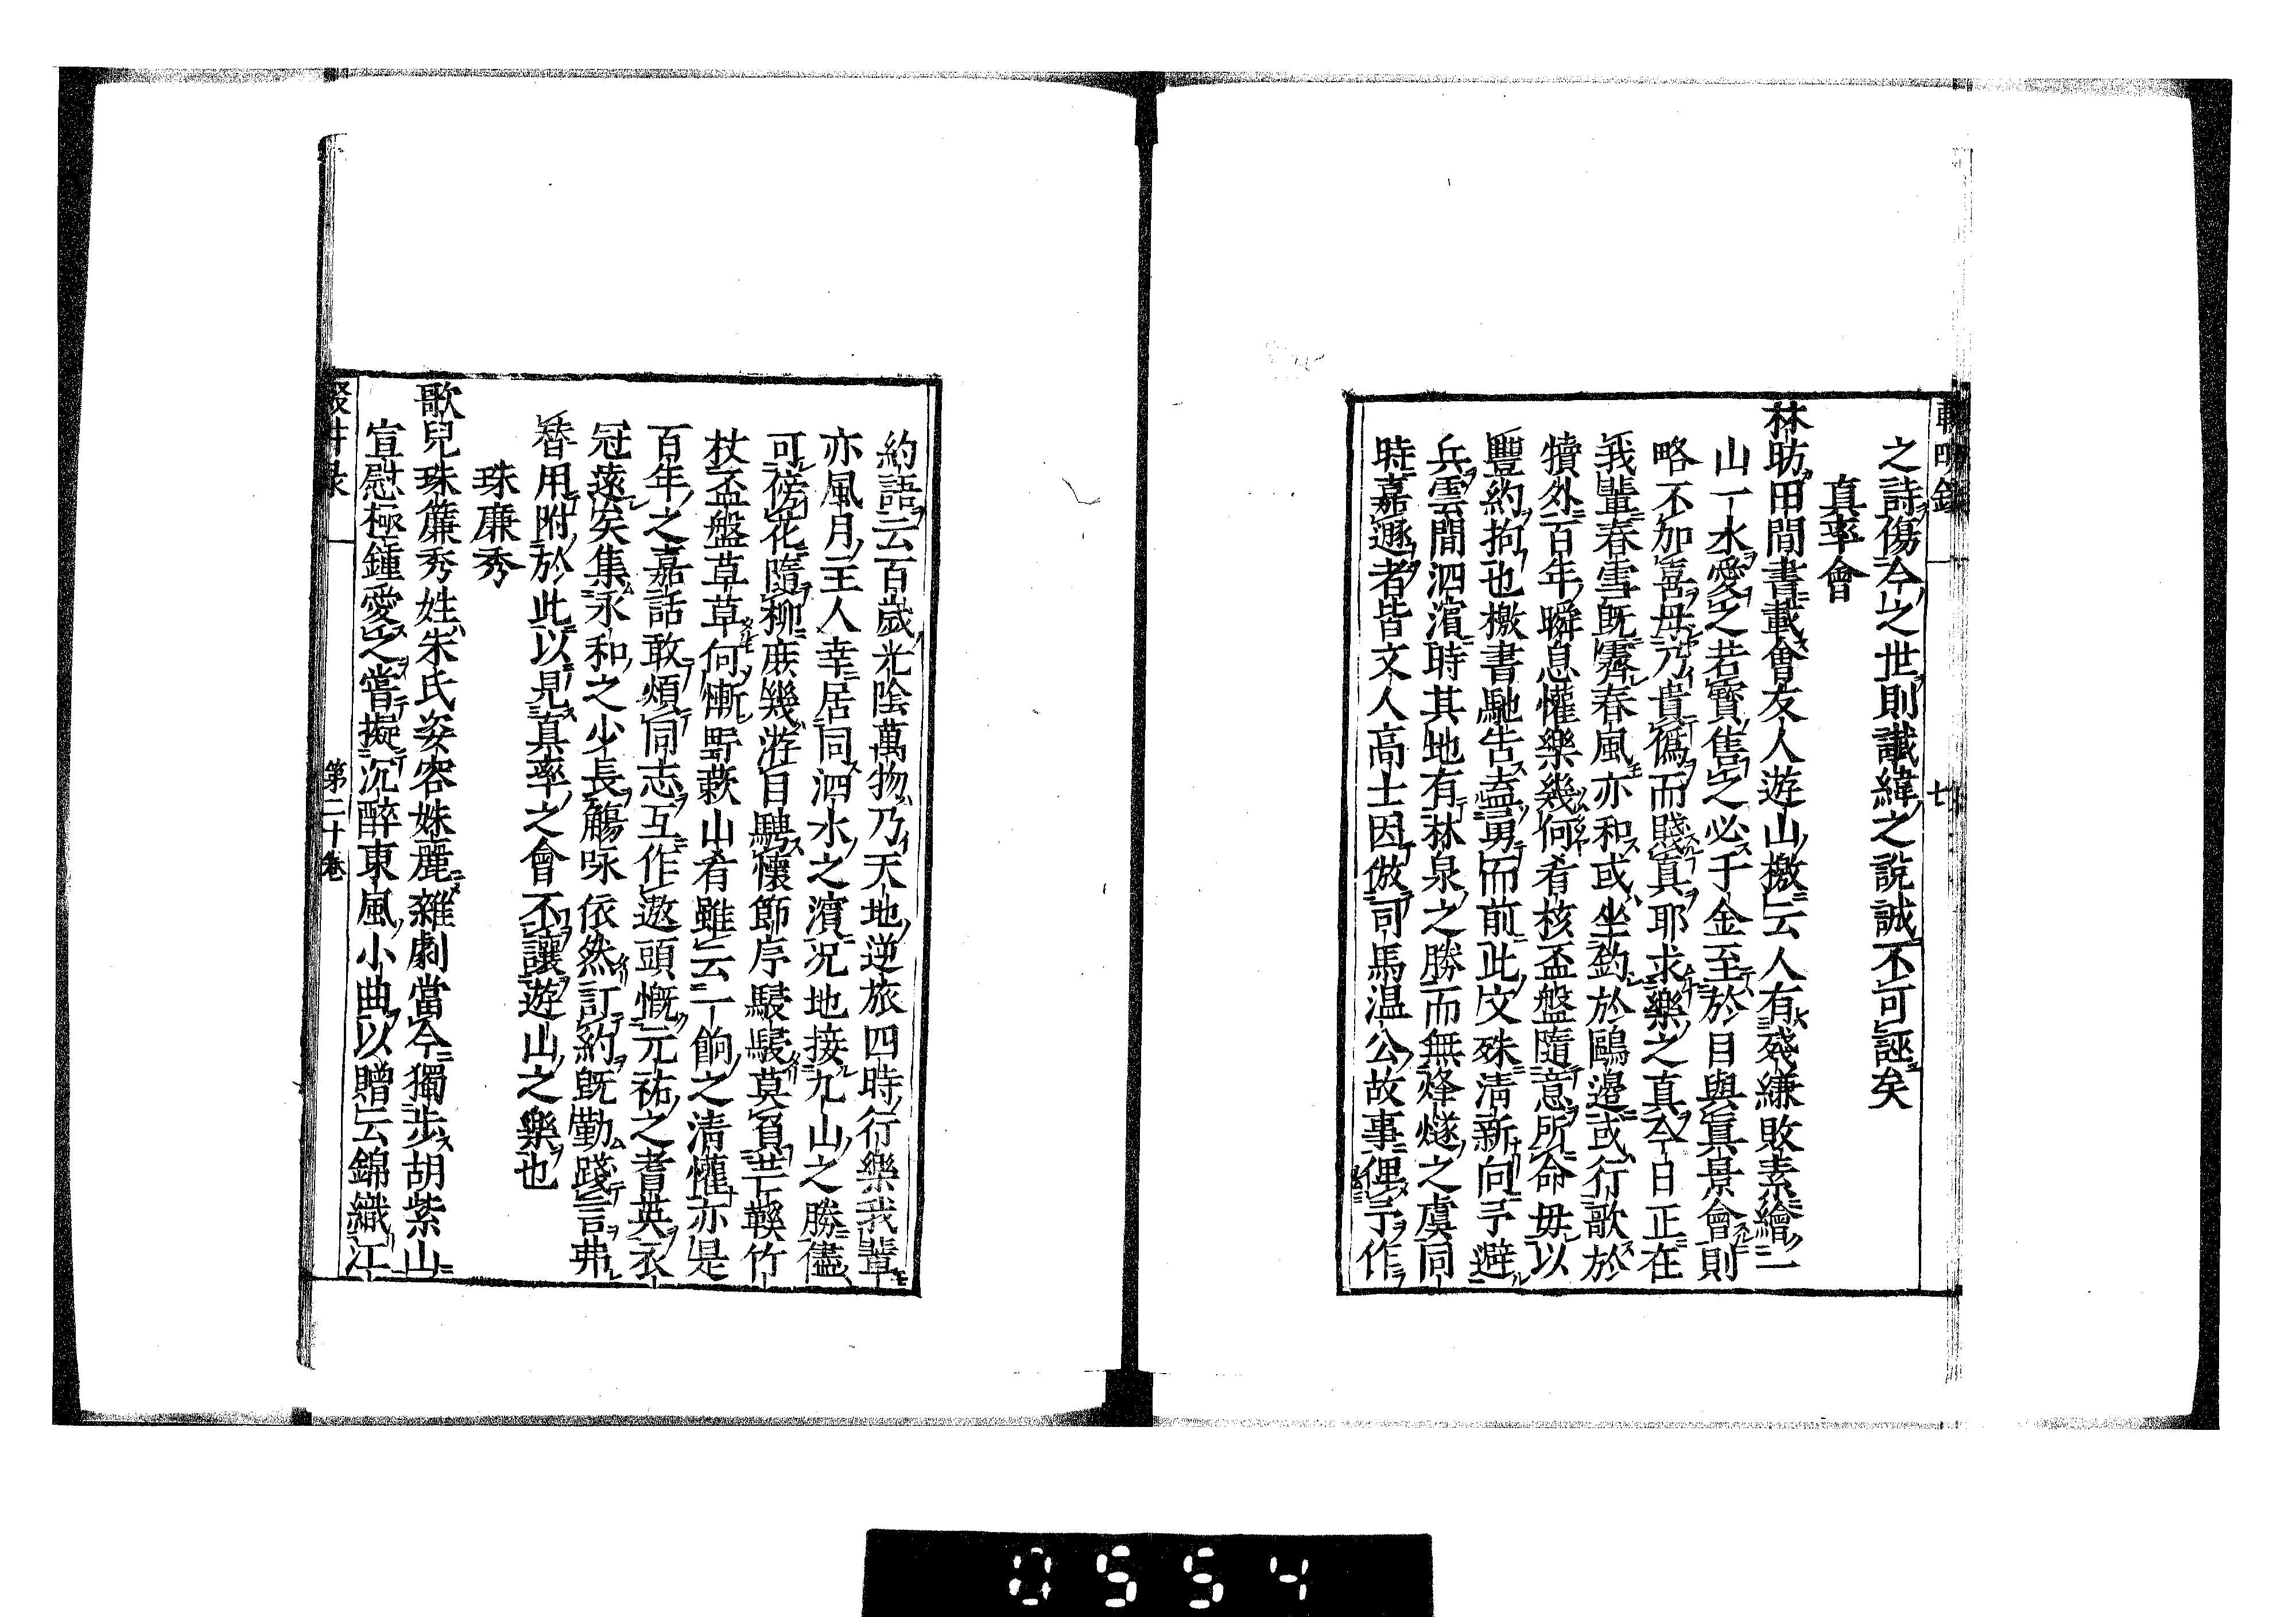 之詩傷今之世則讖緯之說誠不可誣矣
真率會
林昉田間書載會友人遊山檄云人有殘縑敗素繪一
山一水愛之若寶售之必千金至於目與真景會則
略不加喜毋乃貴偽而賤真耶求樂之真今日正在
我輩春雪既霽春風亦和或坐釣於鷗邊或行歌於
犢外百年瞬息懽樂幾何肴核盃盤隨意所命毋以
豐約拘也檄書馳告盍勇而前此文殊清新向予避
兵雲間泗濱時其地有林泉之勝而無烽燧之虞同
時嘉遯者皆文人高士因倣司馬温公故事俾予作
約語云百歲光陰萬物乃天地逆旅四時行樂我輩
亦風月主人幸居同泗水之濱況地接九山之勝儘
可傍花隨柳庶幾游目騁懷節序駸駸莫負芒鞵竹
杖盃盤草草何慚野蔌山肴雖云一餉之清懽亦是
百年之嘉話敢煩同志互作遨頭慨元祐之耆英衣
冠遠矣集永和之少長觴咏依然訂約既勤踐言弗
替用附於此以見真率之會不讓遊山之樂也
珠廉秀
歌兒珠簾秀姓朱氏姿容姝麗雜劇當今獨步胡紫山
宣慰極鍾愛之嘗擬沉醉東風小曲以贈云錦織江
第二十卷
七
0554